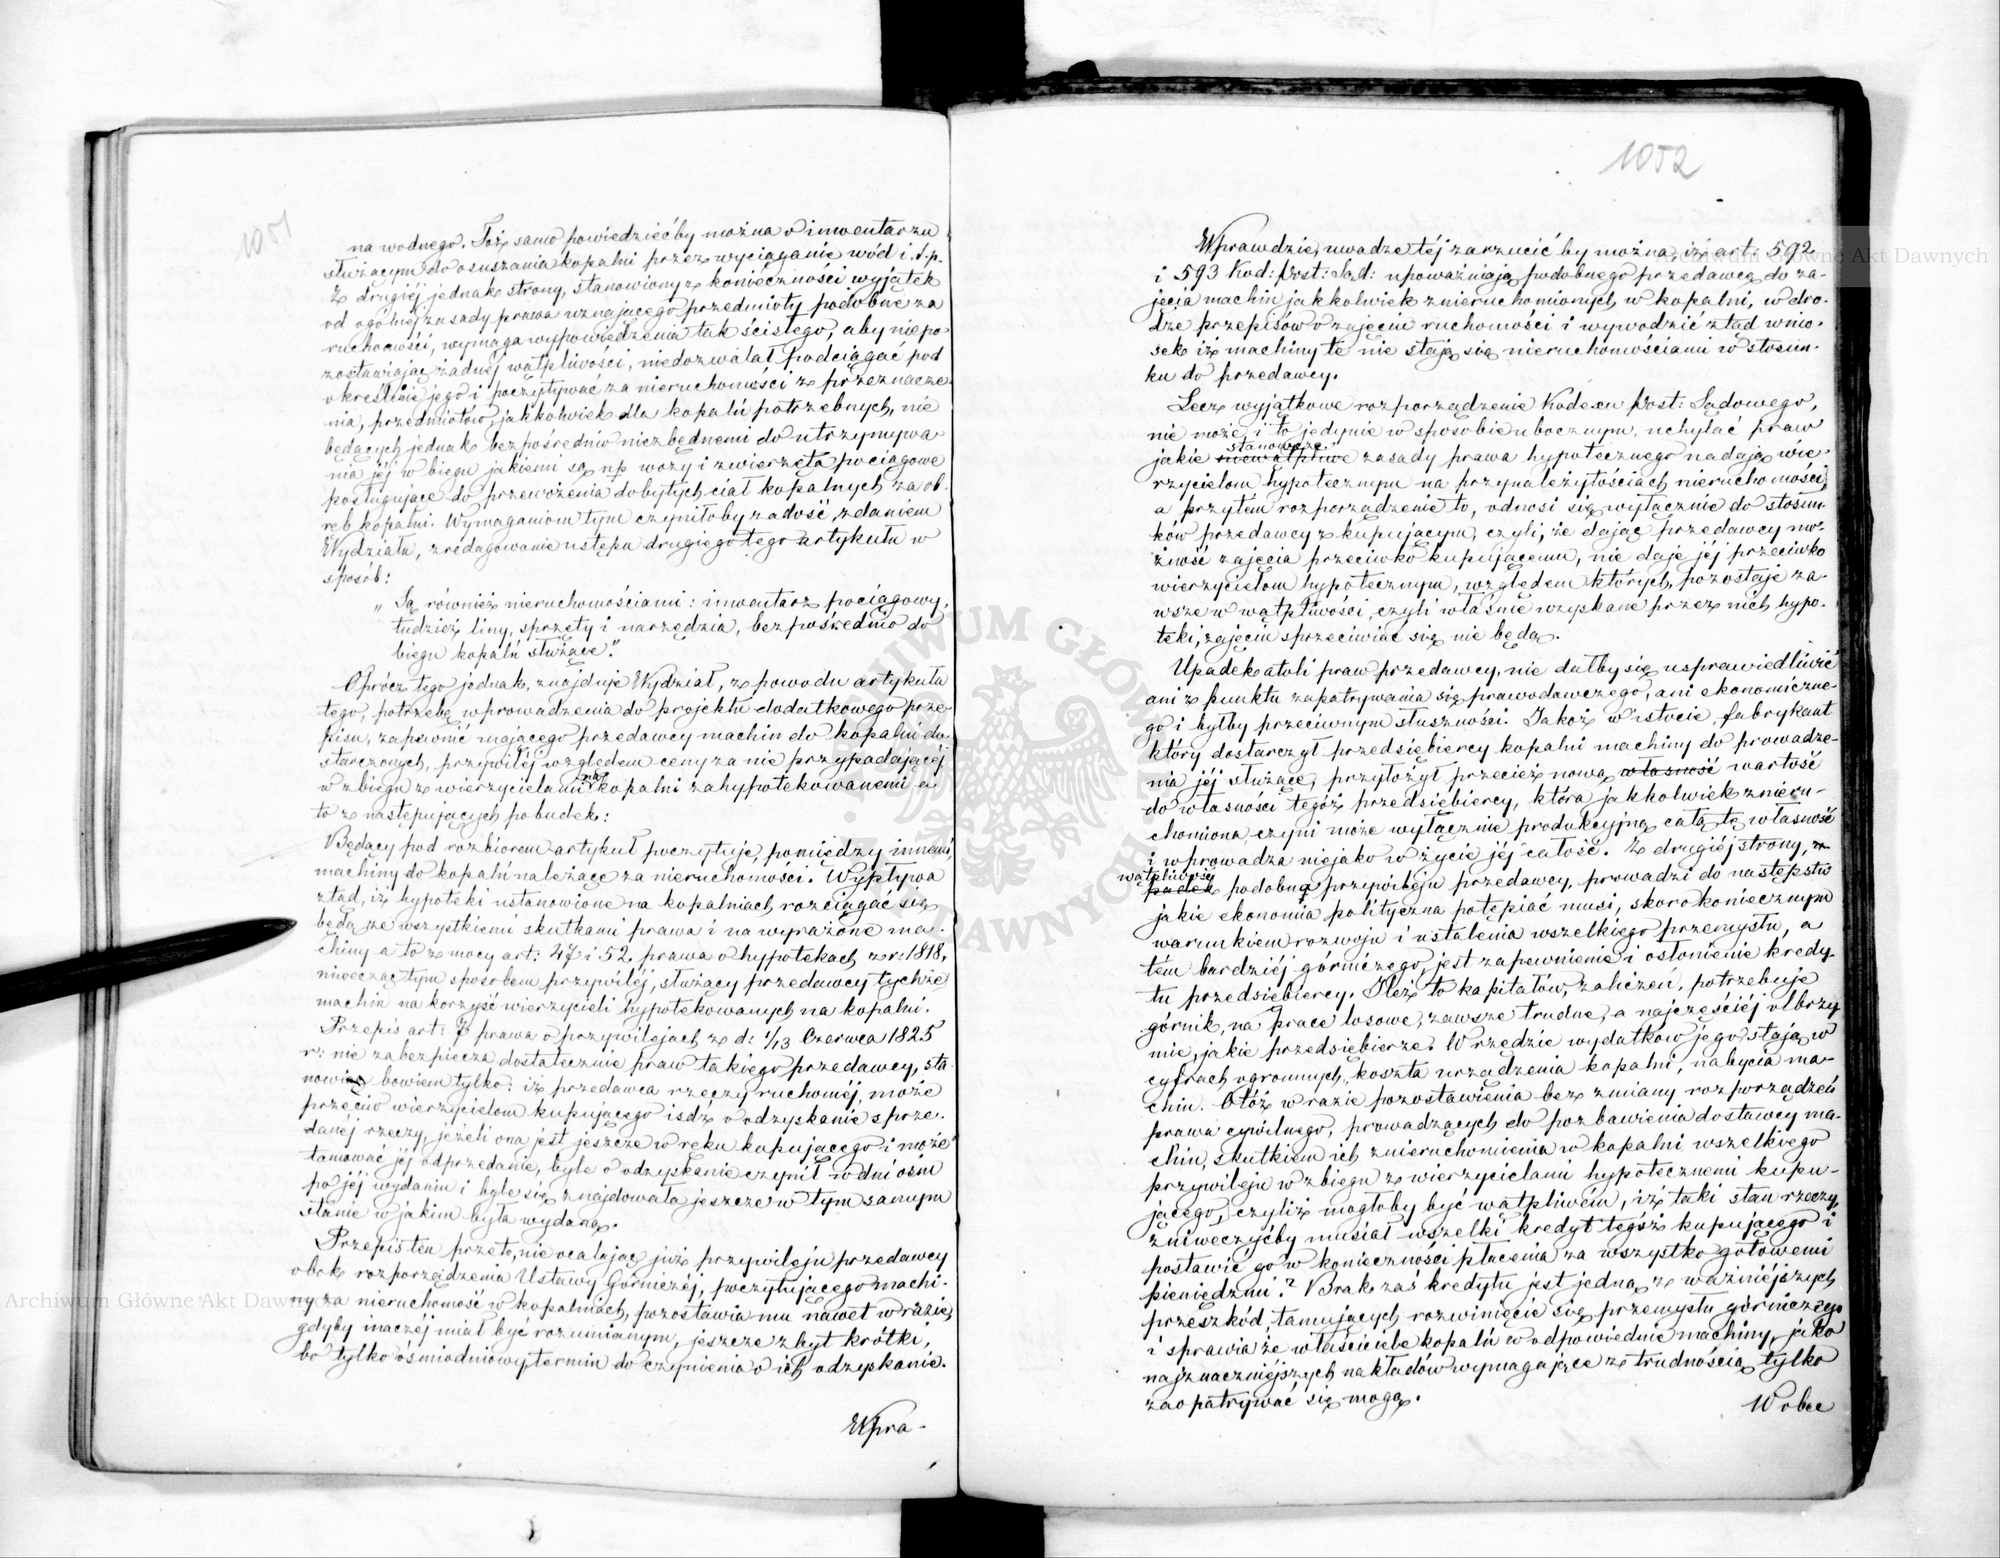 1051
na wodnego. Toż samo powiedziećby można o inwentarzu
służącym do osuszania kopalni przez wyciąganie wód i.t.p.
Z drugiéj jednak strony, stanowiony z konieczności wyjątek
od ogólnéj zasady prawa uznającego przedmioty podobne za
ruchomości, wymaga wypowiedzenia tak ścisłego, aby nie po-
zostawiając żadnéj wątpliwości, niedozwalał podciągać pod
określenie jego i poczytywać za nieruchomości z przeznacze-
nia, przedmiotów, jakkolwiek dla kopalń potrzebnych, nie
będących jednak bezpośrednio niezbędnemi do utrzymywa-
nia jéj w biegu jakiemi są np wozy i zwierzęta pociągowe
posługujące do przewożenia dobytych ciał kopalnych za ob-
ręb kopalni. Wymaganiom tym czyniłoby zadość, zdaniem
Wydziału, zredagowanie ustępu drugiego tego artykułu w
sposób:
„Są również nieruchomościami: inwentarz pociągowy,
tudzież liny, sprzęty i narzędzia, bezpośrednio do
biegu kopalń służące".
Oprócz tego jednak, znajduje Wydział, z powodu artykułu
tego, potrzebę wprowadzenia do projektu dodatkowego prze-
pisu, zapewnić mającego przedawcy machin do kopalni do-
starczonych, przywiléj względem ceny za nie przypadającéj
w zbiegu z wierzycielami na kopalni zahypotekowanemi a
to z następujących pobudek:
Będący pod rozbiorem artykuł poczytuje, pomiędzy innemi,
machiny do kopalń należące za nieruchomości. Wypływa
ztąd, iż hypoteki ustanowione na kopalniach rozciągać się
będą ze wszystkiemi skutkami prawa i na wyrażone ma-
chiny a to z mocy art: 47 i 52. prawa o hypotekach z r: 1818,
niwecząc tym sposobem przywiléj, służący przedawcy tychże
machin na korzyść wierzycieli hypotekowanych na kopalni.
Przepis art: 7 prawa o przywilejach z d: 1/13 Czerwca 1825
r: nie zabezpiecza dostatecznie praw takiego przedawcy, sta-
nowiąc bowiem tylko: iż przedawca rzeczy ruchoméj, może
przeciw wierzycielom kupującego iśdź o odzyskanie sprze-
danéj rzeczy, jeżeli ona jest jeszcze w ręku kupującego i może
tamować jéj odprzedanie, byle o odzyskanie czynił w dni ośm
po jéj wydaniu i byle się znajdowała jeszcze w tym samym
stanie w jakim była wydaną.
Przepis ten przeto, nie ocalając już przywileju przedawcy
obok rozporządzenia Ustawy Górniczéj, poczytującego machi-
ny za nieruchomość w kopalniach, pozostawia mu nawet w razie,
gdyby inaczéj miał być rozumianym, jeszcze zbyt krótki,
bo tylko ośmiodniowy termin do czynienia o ich odzyskanie.
Wpra-
1052
Wprawdzie, uwadze téj zarzucić by można, iż art: 592
i 593 Kod: Post: Sąd: upoważniają podobnego przedawcę do za-
jęcia machin jakkolwiek znieruchomionych w kopalni, w dro-
dze przepisów o zajęciu ruchomości i wywodzić ztąd wnio-
sek iż machiny te nie stają się nieruchomościami w stosun-
ku do przedawcy.
Lecz wyjątkowe rozporządzenie Kodexu Post: Sądowego,
nie może, i to jedynie w sposobie ubocznym, uchylać praw
stanowcze
jakie niewątpliwe zasady prawa hypotecznego nadają wie-
rzycielom hypotecznym na przynależytościach nieruchomości,
a przytem rozporządzenie to, odnosi się wyłącznie do stosun-
ków przedawcy z kupującym, czyli, że dając przedawcy mo-
żność zajęcia przeciwko kupującemu, nie daje jéj przeciwko
wierzycielom hypotecznym, względem których, pozostaje za-
wsze w wątpliwości, czyli właśnie uzyskane przez nich hypo-
teki, zajęciu sprzeciwiać się nie będą.
Upadek atoli praw przedawcy, nie dałby się usprawiedliwić
ani z punktu zapatrywania się prawodawczego, ani ekonomiczne-
go i byłby przeciwnym słuszności. Jakoż w istocie, fabrykant
który dostarczył przedsiębiercy kopalni machiny do prowadze-
nia jéj służące, przyłożył przecież nową własność wartość
do własności tegóż przedsiębiercy, która jakkolwiek znieru-
chomiona, czyni może wyłącznie produkcyjną całą tę własność
i wprowadza niejako w życie jéj całość. Z drugiéj strony,
wątpliwość
padek podobna przywileju przedawcy, prowadzi do następstw
jakie ekonomia polityczna potępiać musi, skoro koniecznym
warunkiem rozwoju i ustalenia wszelkiego przemysłu, a
tém bardziéj górniczego, jest zapewnienie i osłonienie kredy-
tu przedsiębiercy. Ileż to kapitałów, zaliczeń, potrzebuje
górnik, na prace losowe, zawsze trudne, a najczęściéj olbrzy-
mie, jakie przedsiębierze. W rzędzie wydatków jego stają w
cyfrach ogromnych, koszta urządzenia kopalni, nabycia ma-
chin. Otóż w razie pozostawienia bez zmiany rozporządzeń
prawa cywilnego, prowadzących do pozbawienia dostawcy ma-
chin, skutkiem ich znieruchomienia w kopalni wszelkiego
przywileju w zbiegu z wierzycielami hypotecznemi kupu-
jącego, czyliż mogłoby być wątpliwém, iż taki stan rzeczy,
zniweczyćby musiał wszelki kredyt tegóż kupującego i
postawić go w konieczności płacenia za wszystko gotowemi
pieniędzmi? Brak zaś kredytu jest jedną z ważniéjszych
przeszkód, tamujących rozwinięcie się przemysłu górniczego
i sprawia że właściciele kopalń w odpowiednie machiny, jako
najznaczniéjszych nakładów wymagające z trudnością tylko
zaopatrywać się mogą.
Wobec
Archiwum Główne Akt Dawnych
Archiwum Główne Akt Dawnych
ARCHIWUM GŁÓWNE AKT DAWNYCH